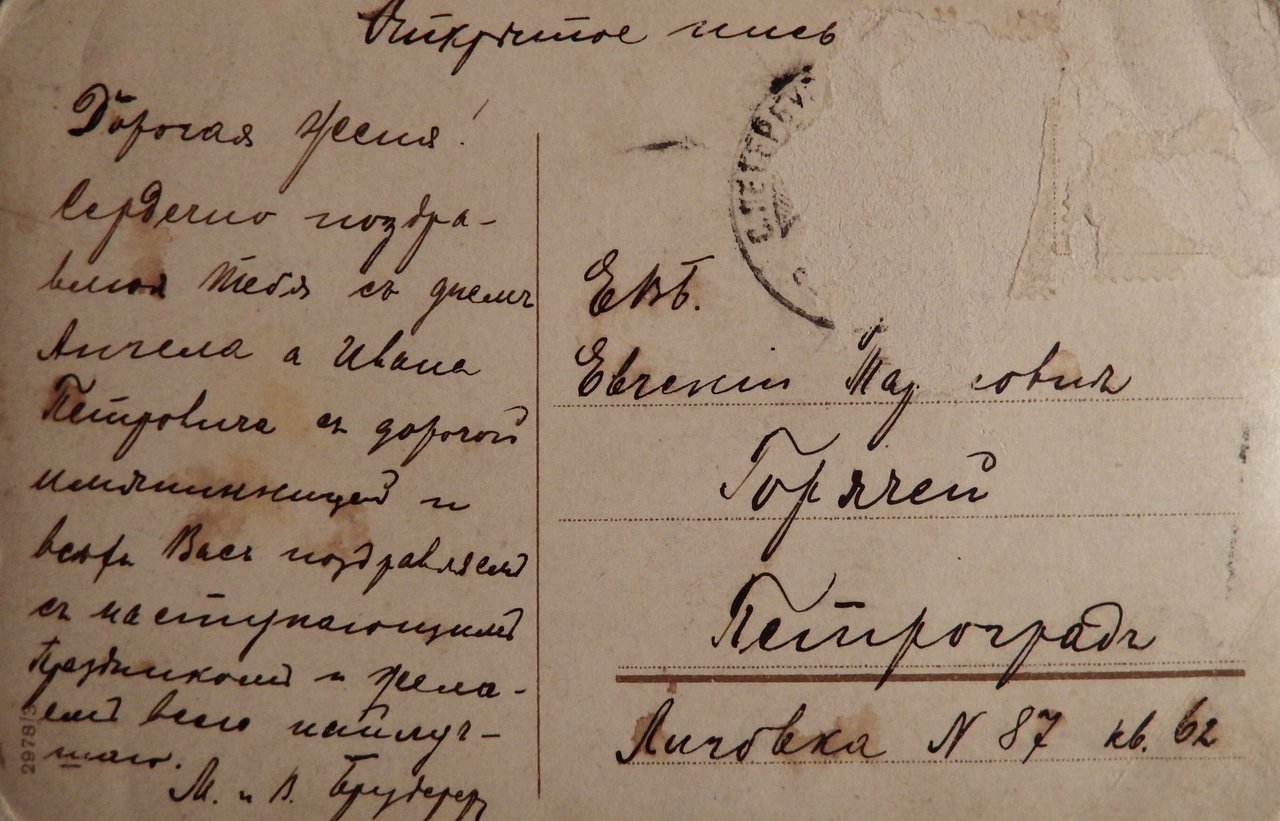 Открытое пись
Дорогая Женя!
Сердечно поздра-
вляю Тебя съ днемъ
Ангела а Ивана
Петровича съ дорогой
имянинницей и
всѣхъ Васъ поздравляемъ
съ наступающимъ
Праздникомъ и жела-
емъ всего наилуч-
шаго.
М. и В.
2978/3
С.ПЕТЕРБУ
ЕВБ.
Евгеніи
Горячей
Петроградъ
Лиговка N 87 кв. 62